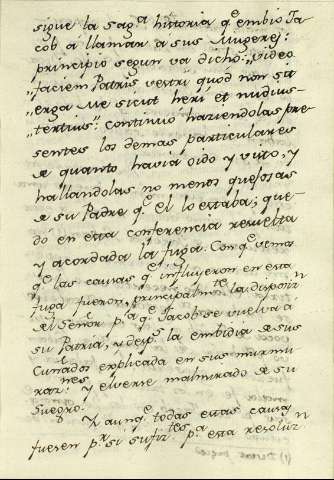 sigue la sag.ª historia q.e embio Ja
cob á llamar a sus Mugeres:
principio segun va dicho: "video
"faciem Patris vestri quód non sit
"erga Me sicut heri et nudius-
"tertius": continuó haziendolas pre
sentes los demas particulares
de quanto havia oido y visto, y
hallandolas no menos quejosas
de su Padre q.e el lo estaba; que-
dó en esta conferencia resuelta
y acordada la fuga. Con q.e vemos
q.e las causas q.e influyeron en esta
fuga fueron, principalm.te la disposiz.n
del Señor p.a q.e Jacob se vuelva á
su Patria, y desp.s la embidia de sus
Cuñados explicada en sus murmu
raz.nes y el verse malmirado de su
Suegro.
Y aunq.e todas estas causas
fuesen p.r si sufiz.tes p.a esta resoluz.n